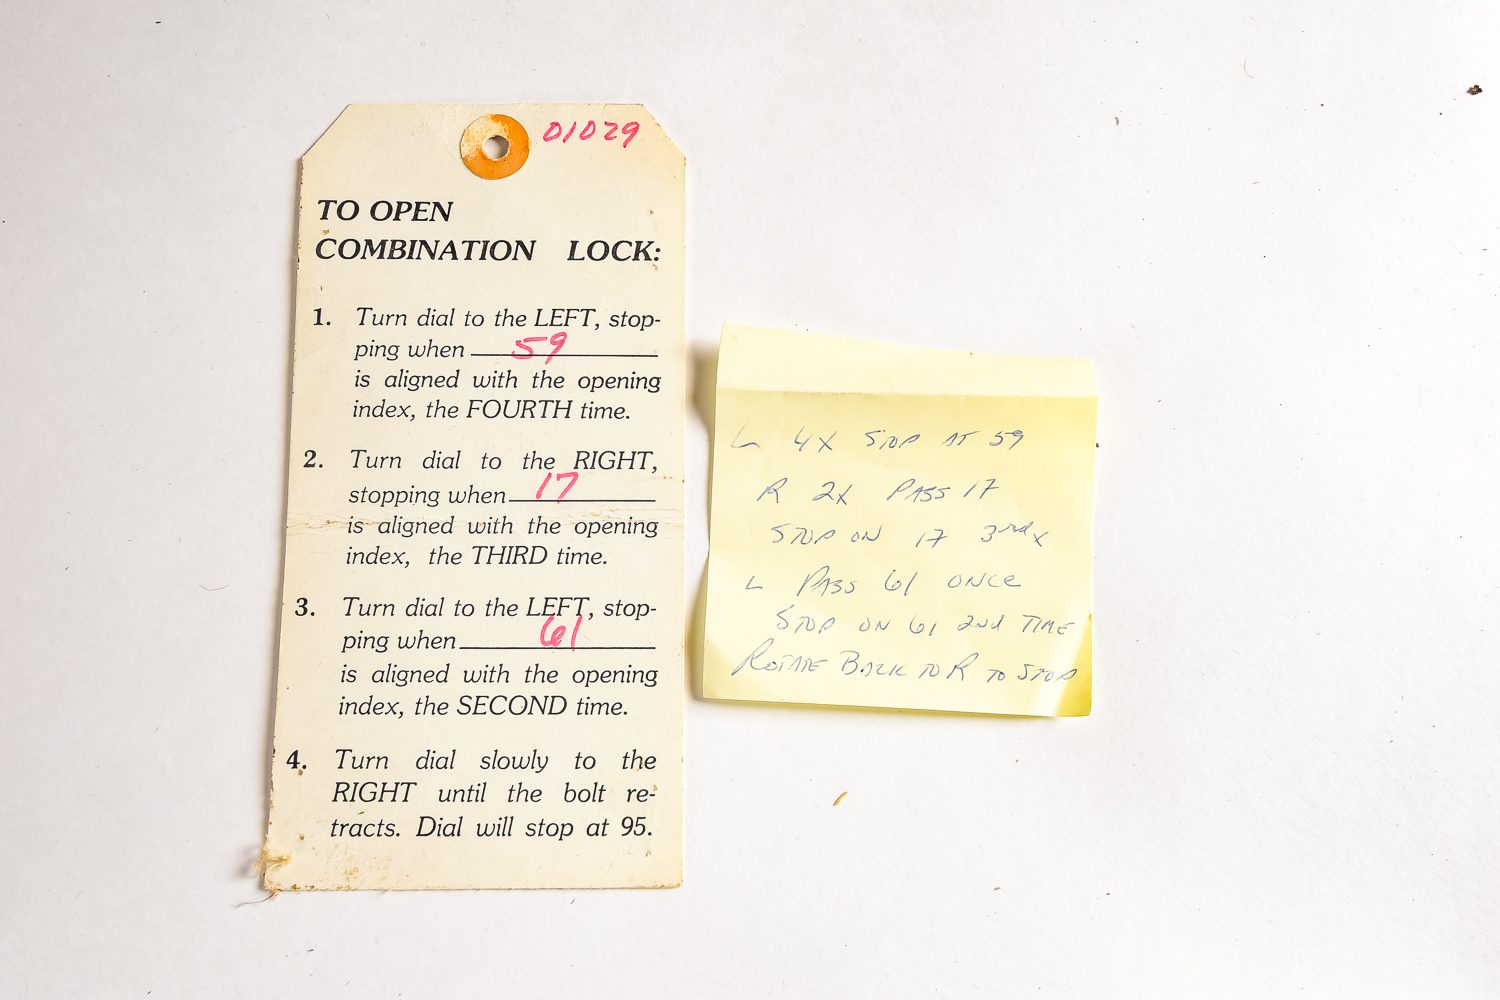 01029
TO OPEN
COMBINATION LOCK:
1. Turn dial to the LEFT, stop-
ping when 59
is aligned with the opening
index, the FOURTH time.
2. Turn dial to the RIGHT,
stopping when 17
is aligned with the opening
index, the THIRD time.
3. Turn dial to the LEFT, stop-
ping when 61
is aligned with the opening
index, the SECOND time.
4. Turn dial slowly to the
RIGHT until the bolt re-
tracts. Dial will stop at 95.
L 4X STOP AT 59
R 2X PASS 17
STOP ON 17 3rd X
L PASS 61 ONCE
STOP ON 61 2nd TIME
ROTATE BACK TO R TO STOP